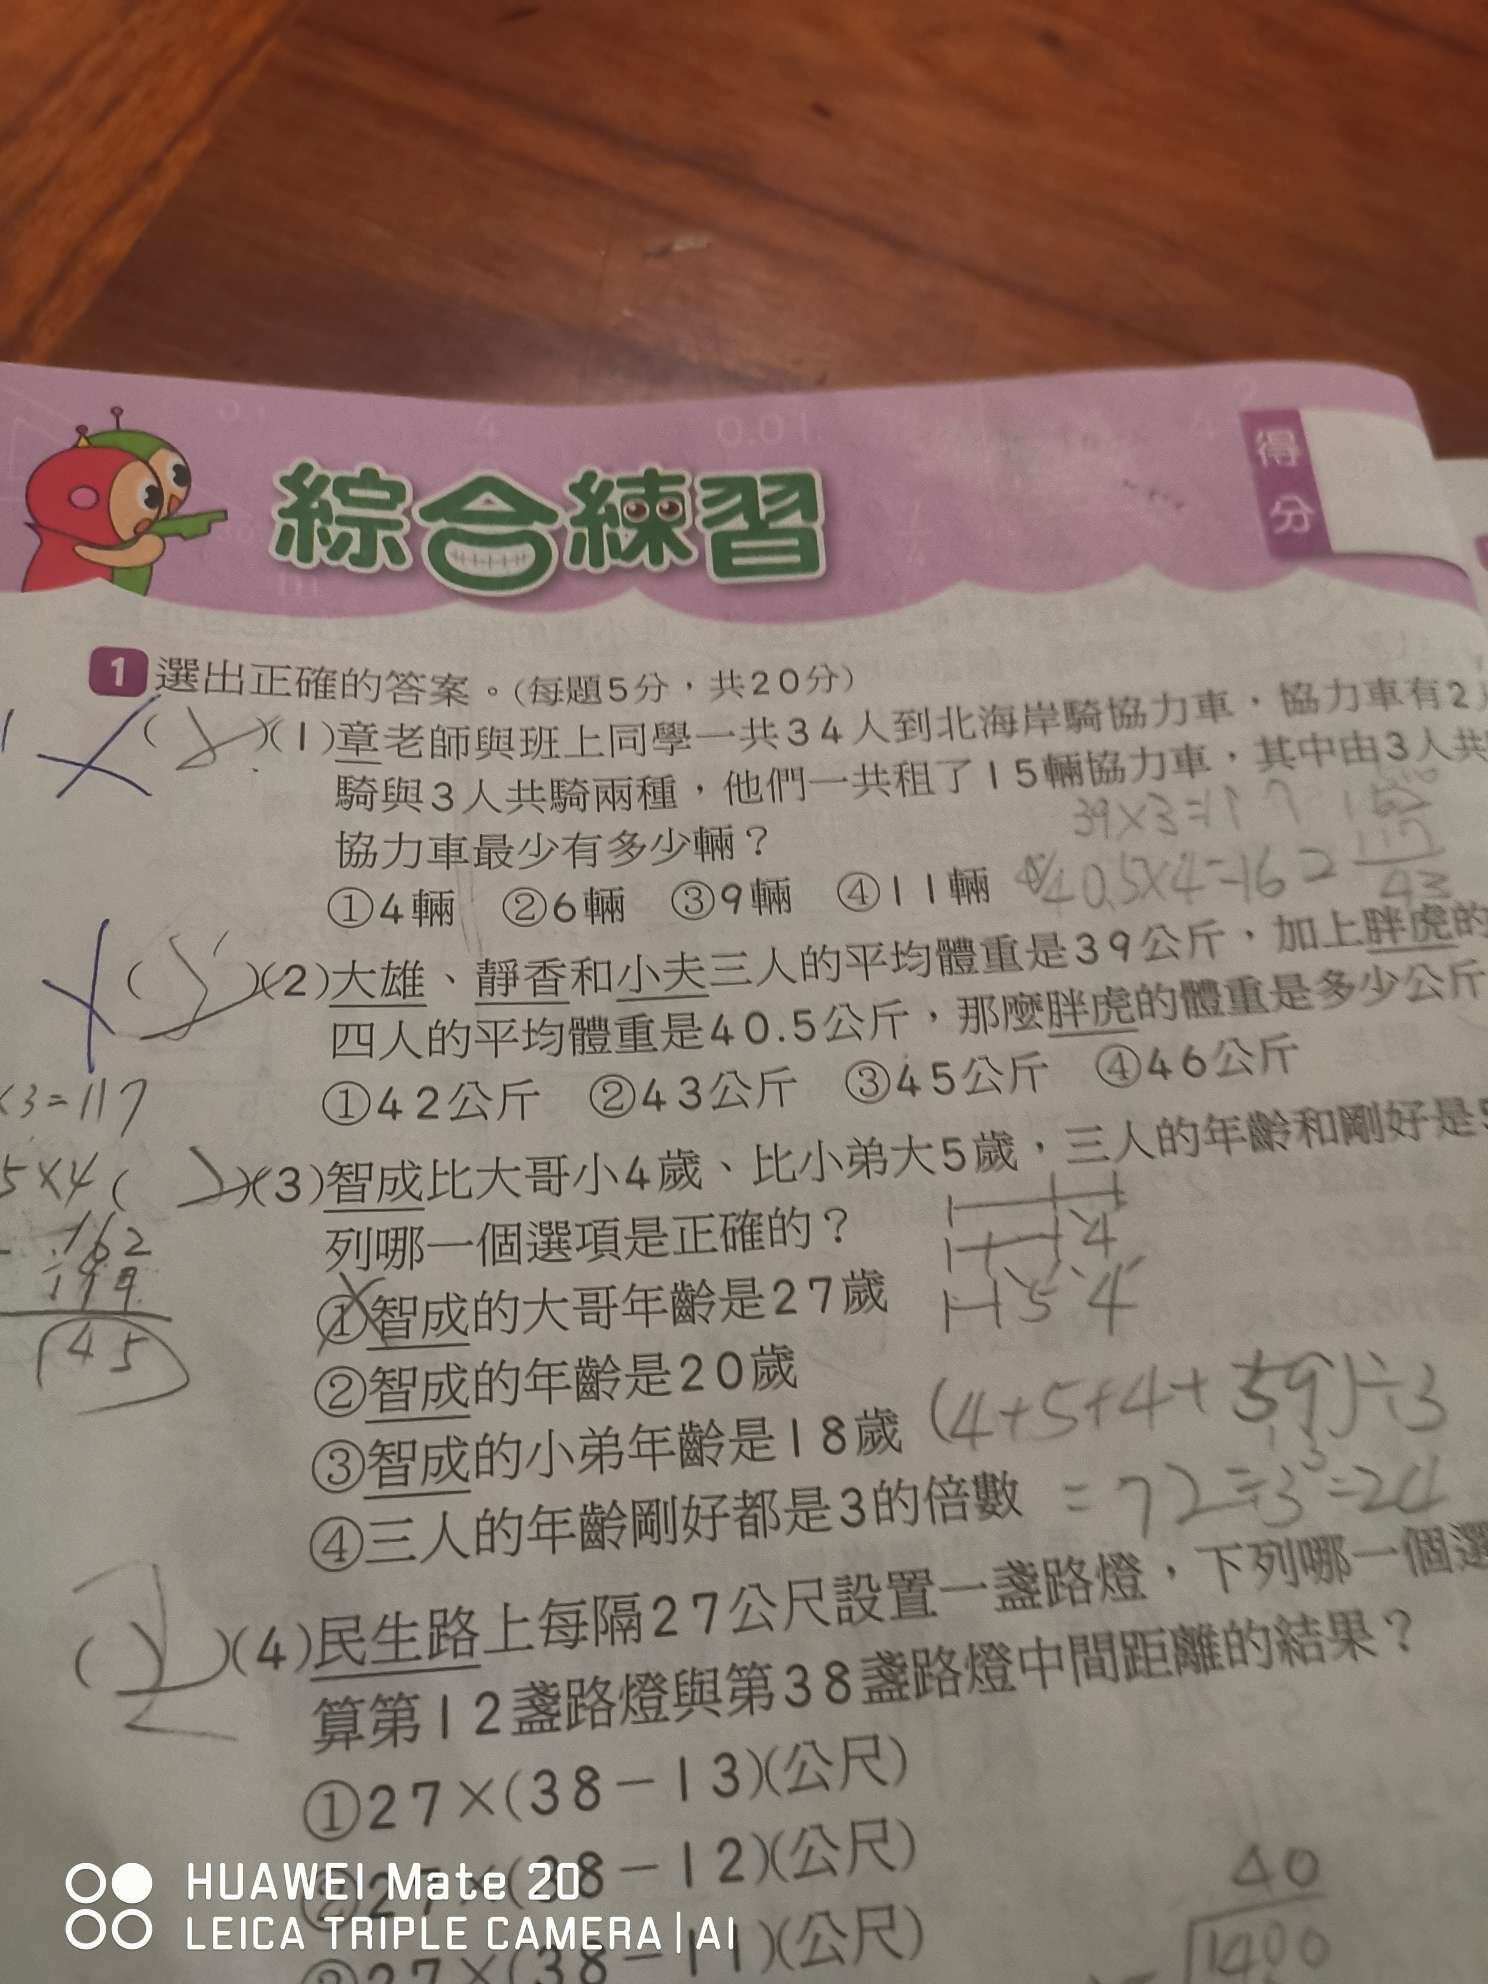 綜合練習
得分
1 選出正確的答案。(每題5分，共20分)
(1)章老師與班上同學一共34人到北海岸騎協力車，協力車有2
騎與3人共騎兩種，他們一共租了15輛協力車，其中由3人共
協力車最少有多少輛？
39×3=117
①4輛 ②6輛 ③9輛 ④11輛
40.5×4=162
(2)大雄、靜香和小夫三人的平均體重是39公斤，加上胖虎的
四人的平均體重是40.5公斤，那麼胖虎的體重是多少公斤
①42公斤 ②43公斤 ③45公斤 ④46公斤
×3=117
5×4
162
45
(3)智成比大哥小4歲、比小弟大5歲，三人的年齡和剛好是5
列哪一個選項是正確的？
4
5 4
①智成的大哥年齡是27歲
②智成的年齡是20歲
③智成的小弟年齡是18歲
(4+5+4+59)÷3
④三人的年齡剛好都是3的倍數
=72÷3=24
(4)民生路上每隔27公尺設置一盞路燈，下列哪一個選
算第12盞路燈與第38盞路燈中間距離的結果？
①27×(38－13)(公尺)
②27×(38－12)(公尺)
③27×(38－11)(公尺)
40
1400
HUAWEI Mate 20
LEICA TRIPLE CAMERA|AI